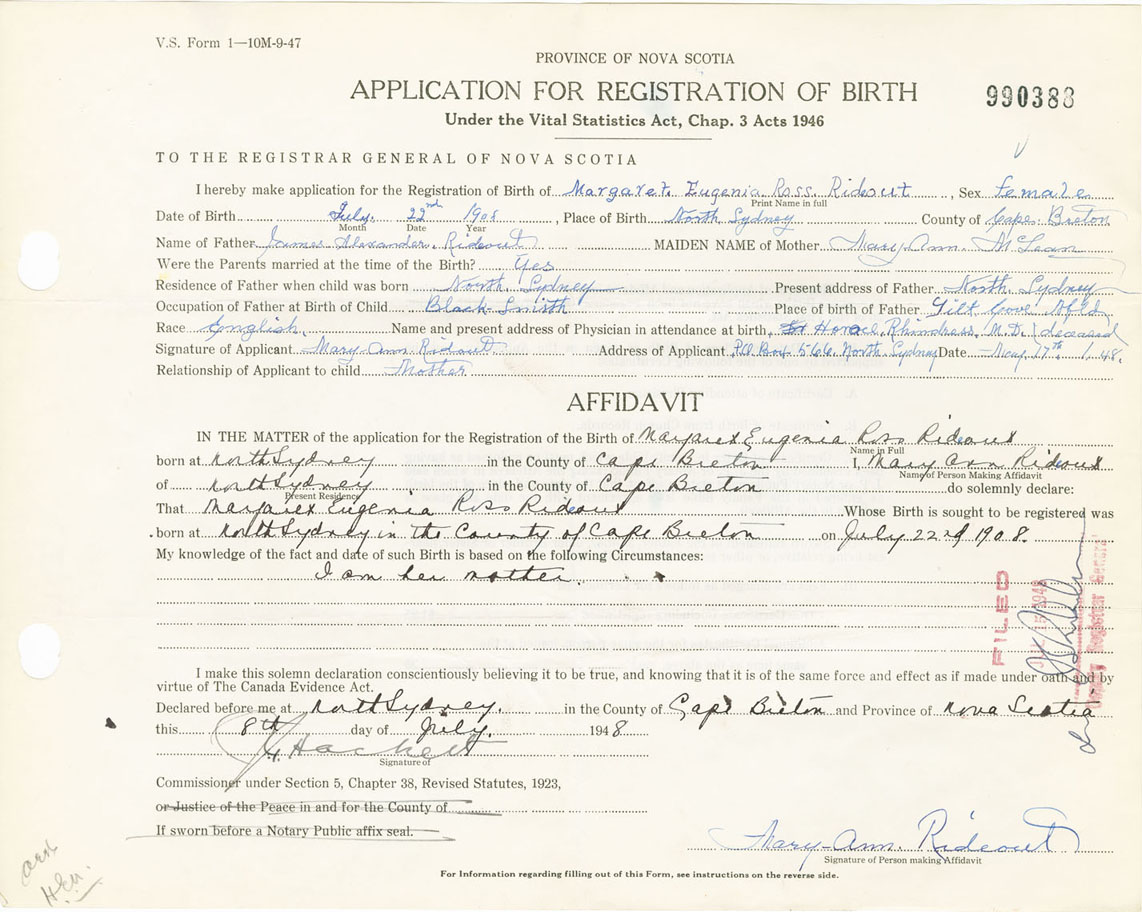 V.S. Form 1—10M-9-47
PROVINCE OF NOVA SCOTIA
APPLICATION FOR REGISTRATION OF BIRTH
990388
Under the Vital Statistics Act, Chap. 3 Acts 1946
TO THE REGISTRAR GENERAL OF NOVA SCOTIA
I hereby make application for the Registration of Birth of Margaret Eugenia Ross Rideout, Sex female
Print Name in full
Date of Birth July 22nd 1908, Place of Birth North Sydney County of Cape Breton
Month Date Year
Name of Father James Alexander Rideout MAIDEN NAME of Mother Mary Ann McLean
Were the Parents married at the time of the Birth? Yes
Residence of Father when child was born North Sydney Present address of Father North Sydney
Occupation of Father at Birth of Child Black Smith Place of birth of Father Tilt Cove Nfld
Race English Name and present address of Physician in attendance at birth Horace Rhindress M.D. (deceased
Signature of Applicant Mary Ann Rideout Address of Applicant P.O. Box 566 North Sydney Date May 17th 48.
Relationship of Applicant to child Mother
AFFIDAVIT
IN THE MATTER of the application for the Registration of the Birth of Margaret Eugenia Ross Rideout
Name in Full
born at North Sydney in the County of Cape Breton I, Mary Ann Rideout
Name of Person Making Affidavit
of North Sydney in the County of Cape Breton do solemnly declare:
Present Residence
That Margaret Eugenia Ross Rideout Whose Birth is sought to be registered was
born at North Sydney in the County of Cape Breton on July 22nd 1908.
My knowledge of the fact and date of such Birth is based on the following Circumstances:
I am her mother.
FILED
JUL 15 1948
Deputy Registrar General
I make this solemn declaration conscientiously believing it to be true, and knowing that it is of the same force and effect as if made under oath and by
virtue of The Canada Evidence Act.
Declared before me at North Sydney. in the County of Cape Breton and Province of Nova Scotia
this 8th day of July. 1948
Hackett
Signature of
Commissioner under Section 5, Chapter 38, Revised Statutes, 1923,
or Justice of the Peace in and for the County of
If sworn before a Notary Public affix seal.
Mary-Ann. Rideout
Signature of Person making Affidavit
For Information regarding filling out of this Form, see instructions on the reverse side.